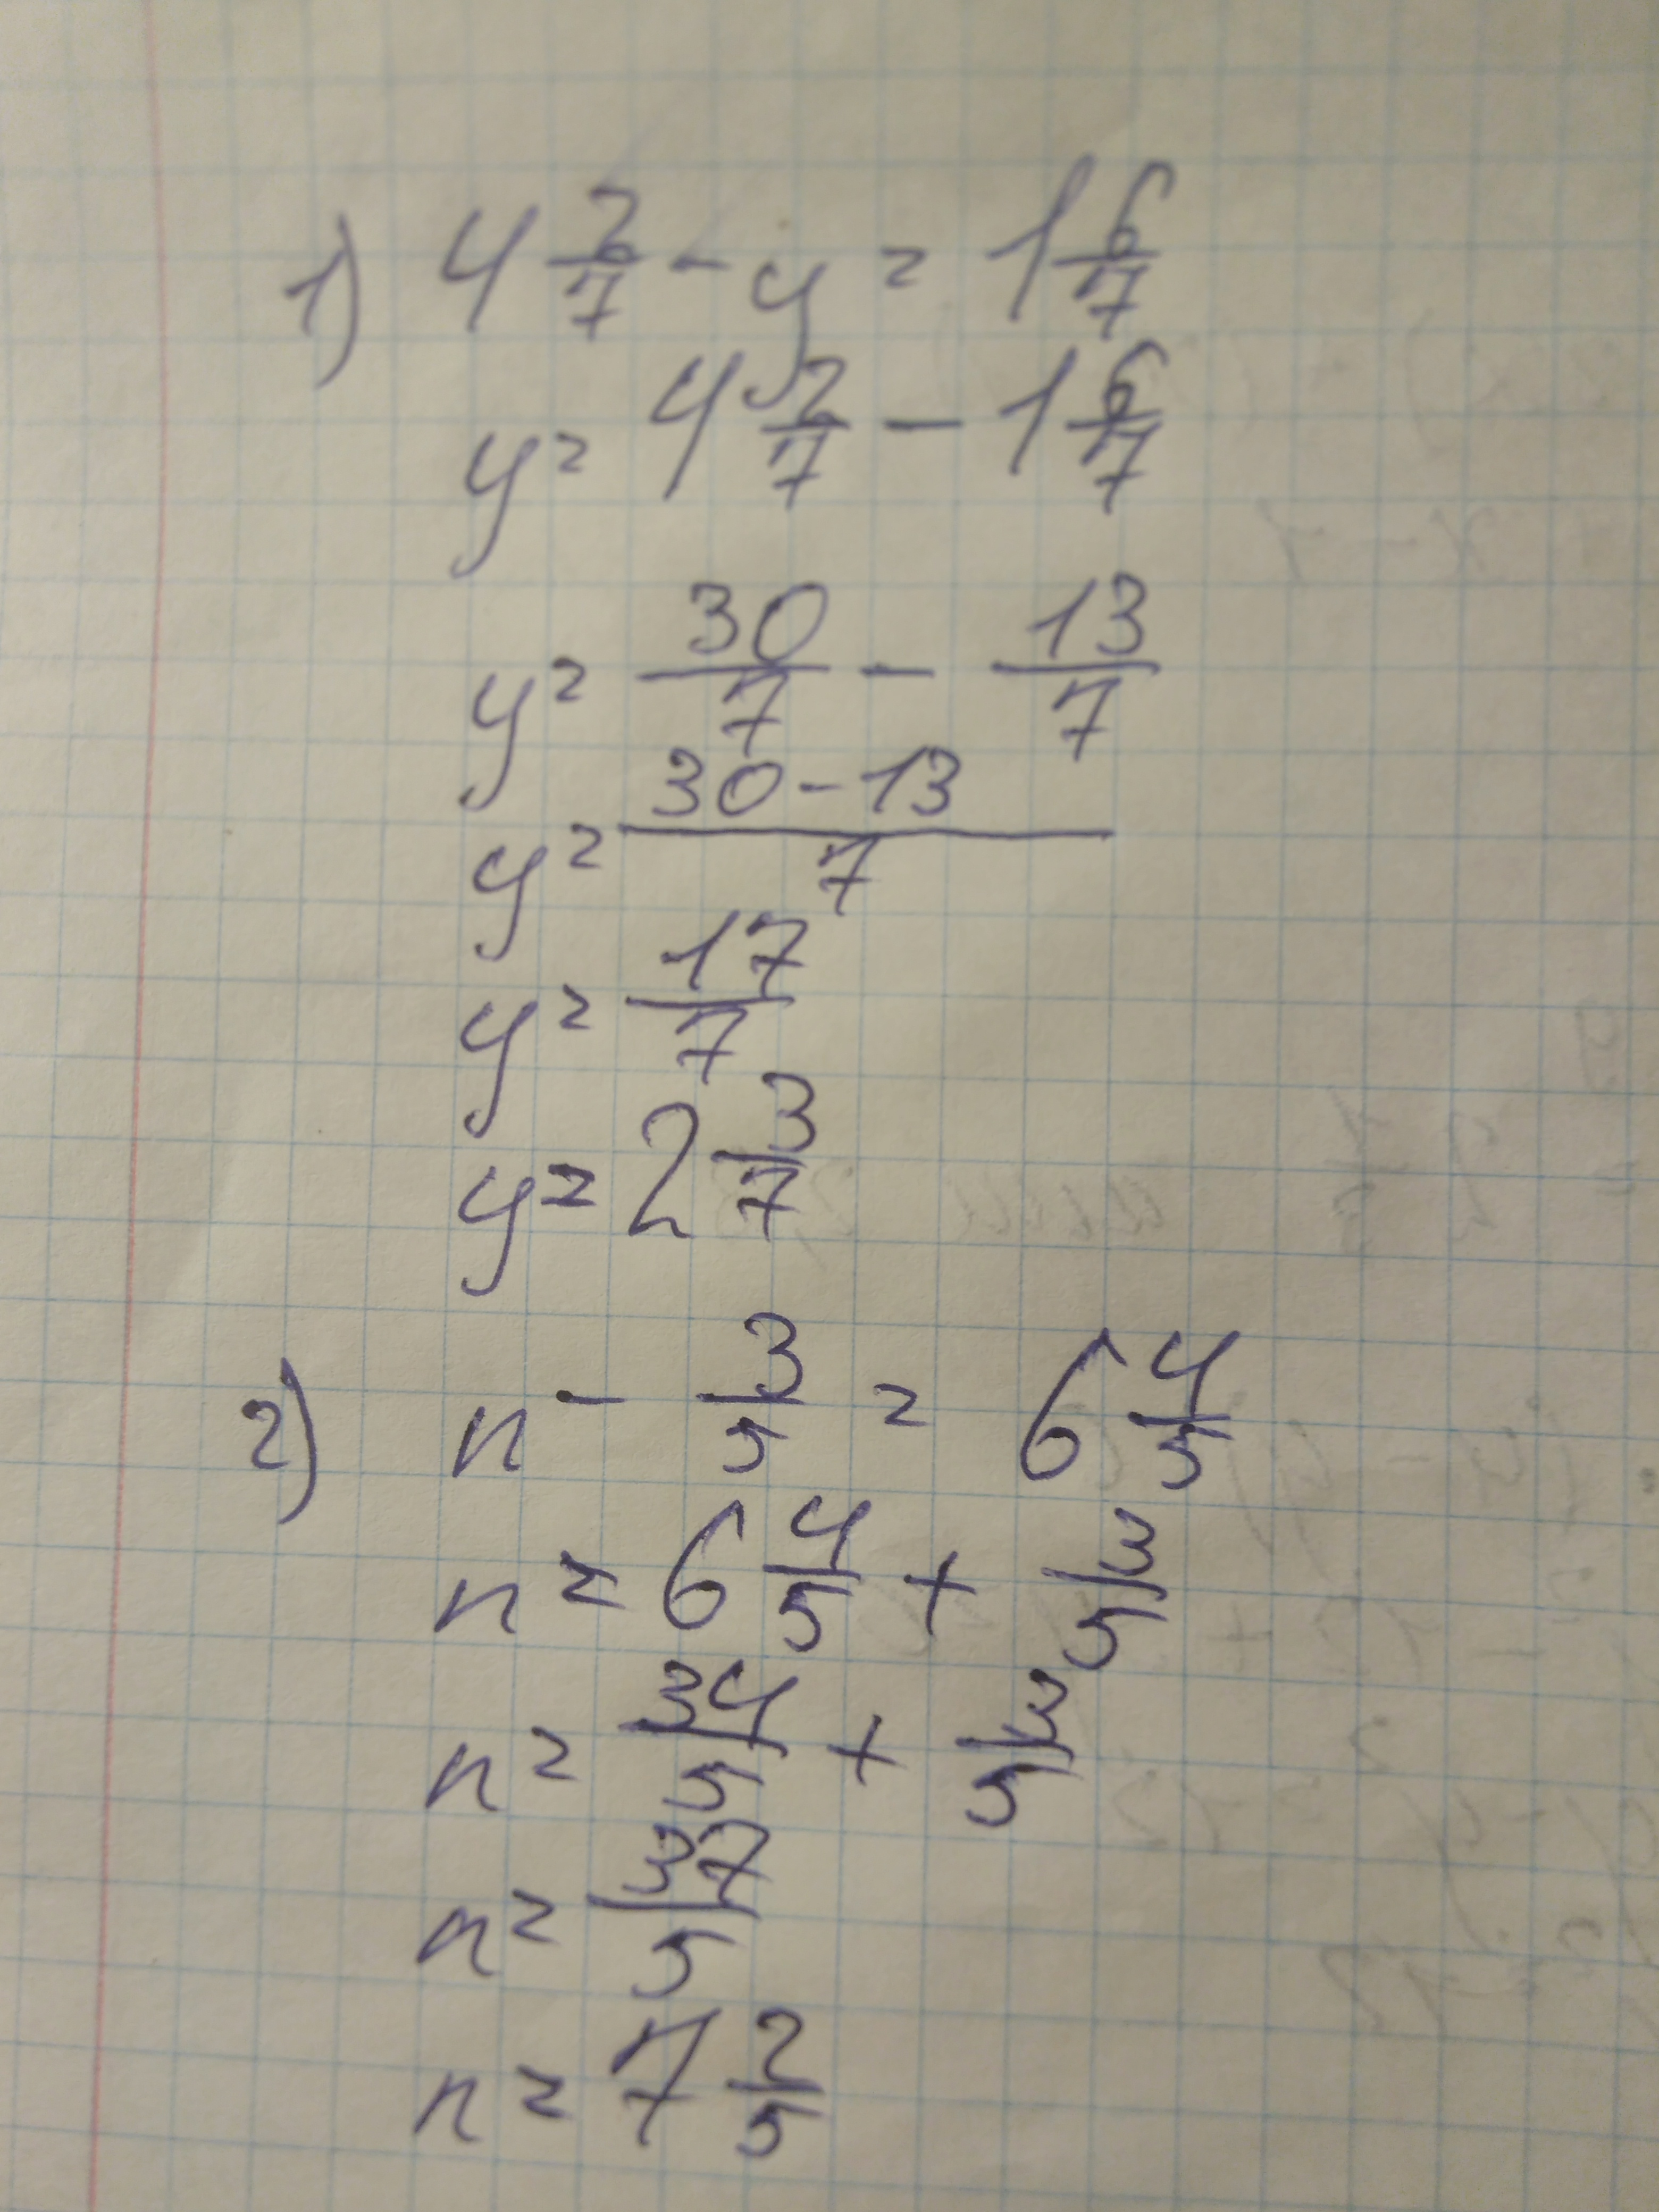 1) 4 2/7 - y = 1 6/7
y = 4 2/7 - 1 6/7
y = 30/7 - 13/7
y = (30-13)/7
y = 17/7
y = 2 3/7
2) n - 3/5 = 6 4/5
n = 6 4/5 + 3/5
n = 34/5 + 3/5
n = 37/5
n = 7 2/5